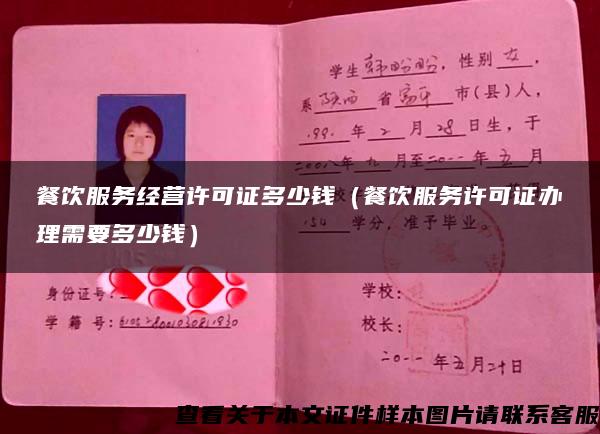 学生韩盼盼，性别女，
系陕西省富平市(县)人，
1991年2月28日生，于
二00八年九月至二0一一年五月
餐饮服务经营许可证多少钱（餐饮服务许可证办
理需要多少钱）
154学分，准予毕业。
身份证号：
学籍号：
学校：
校长：
二0一一年五月二十日
查看关于本文证件样本图片请联系客服